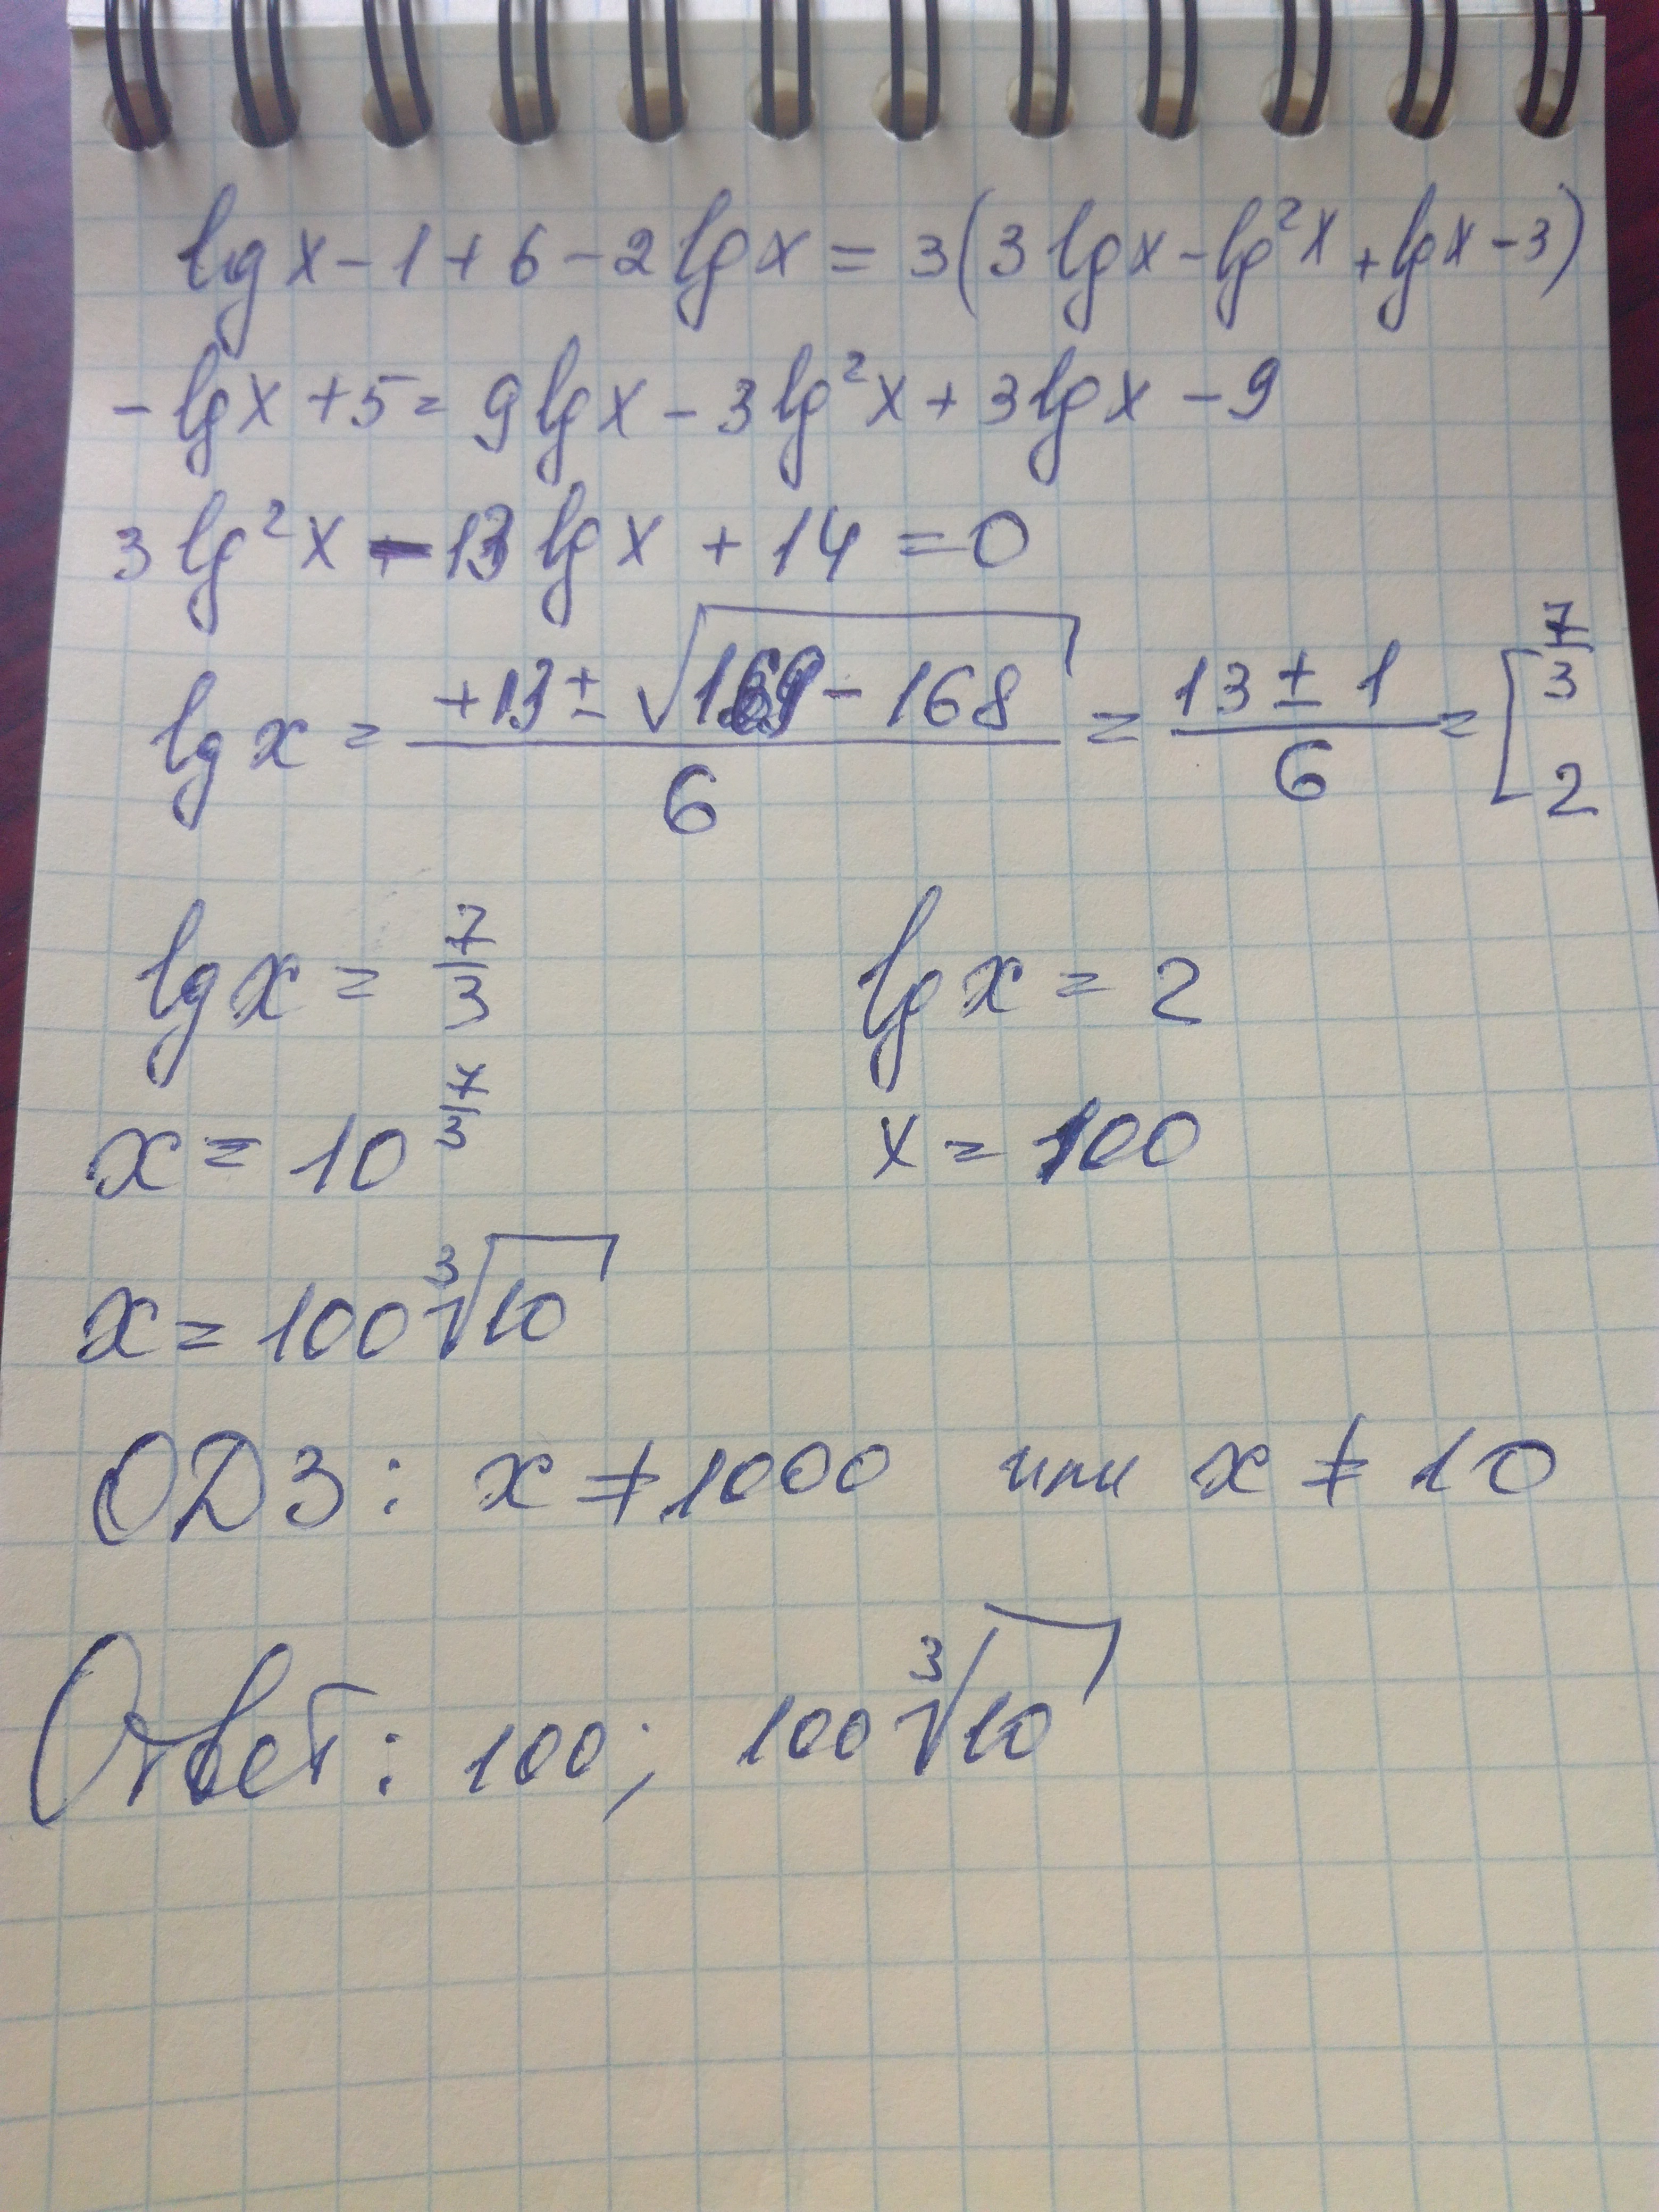 lg x - 1 + 6 - 2 lg x = 3(3 lg x - lg²x + lg x - 3)
- lg x + 5 = 9 lg x - 3 lg²x + 3 lg x - 9
3 lg²x - 13 lg x + 14 = 0
lg x = (+13 ± √(169 - 168)) / 6 = (13 ± 1) / 6 = [ 7/3 2
lg x = 7/3 lg x = 2
x = 10^(7/3) x = 100
x = 100 ∛10
ОДЗ: x ≠ 1000 или x ≠ 10
Ответ: 100; 100 ∛10